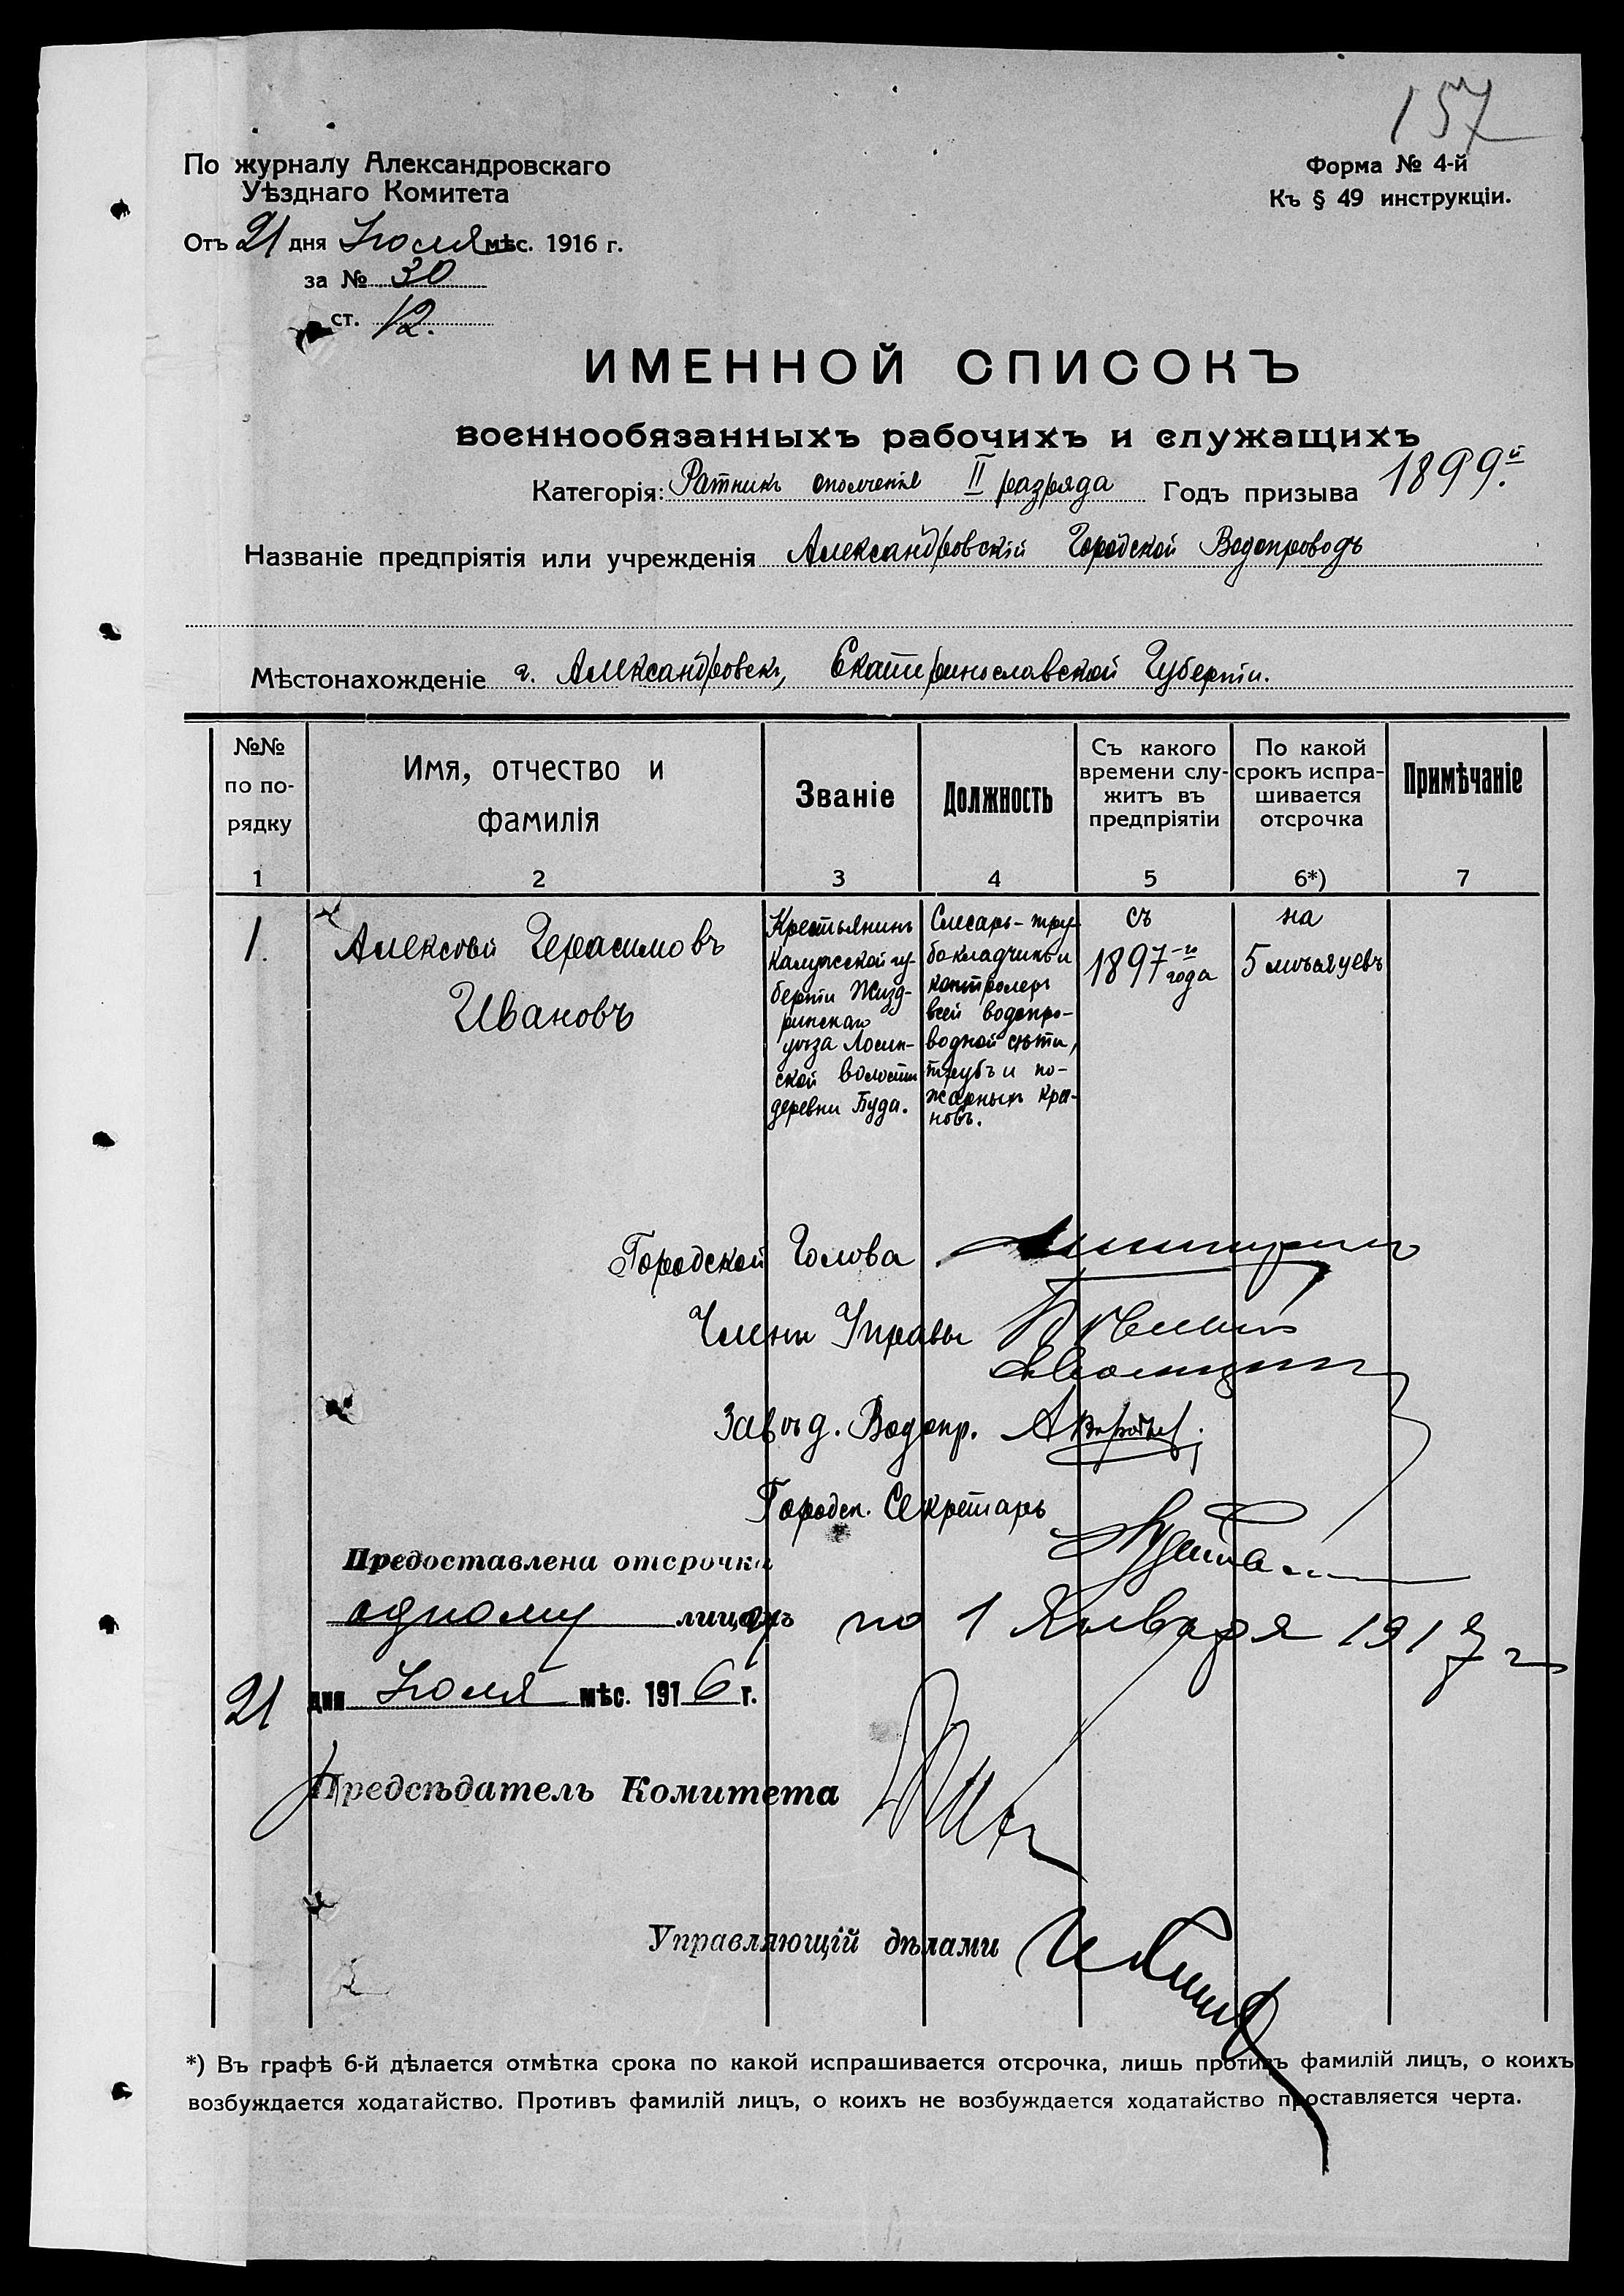 157
По журналу Александровскаго
Уѣзднаго Комитета
Отъ 21 дня Іюля мѣс. 1916 г.
за № 30
ст. 12.
Форма № 4-й
Къ § 49 инструкціи.
ИМЕННОЙ СПИСОКЪ
военнообязанныхъ рабочихъ и служащихъ
Категорія: Ратникъ ополченія II разряда Годъ призыва 1899й.
Названіе предпріятія или учрежденія Александровскій Городской Водопроводъ
Мѣстонахожденіе г. Александровскъ, Екатеринославской Губерніи.
№№
по по-
рядку
Имя, отчество и
фамилія
Званіе
Должность
Съ какого
времени слу-
житъ въ
предпріятіи
По какой
срокъ испра-
шивается
отсрочка
Примѣчаніе
1 2 3 4 5 6*) 7
1.
Алексѣй Герасимовъ
Ивановъ
Крестьянинъ
Калужской гу-
берніи Жизд-
ринскаго
уѣзда Лосин-
ской волости
деревни Буда.
Слесарь-тру-
бокладчикъ и
контролеръ
всей водопро-
водной сѣти,
трубъ и по-
жарныхъ кра-
новъ.
съ
1897-го
года
на
5 мѣсяцевъ
Городской Голова
Члены Управы
Завѣд. Водопр.
Городск. Секретарь
Предоставлена отсрочка
одному лицу по 1 Января 1917 г
21 дня Іюля мѣс. 1916 г.
Предсѣдатель Комитета
Управляющій дѣлами
*) Въ графѣ 6-й дѣлается отмѣтка срока по какой испрашивается отсрочка, лишь противъ фамилій лицъ, о коихъ
возбуждается ходатайство. Противъ фамилій лицъ, о коихъ не возбуждается ходатайство проставляется черта.